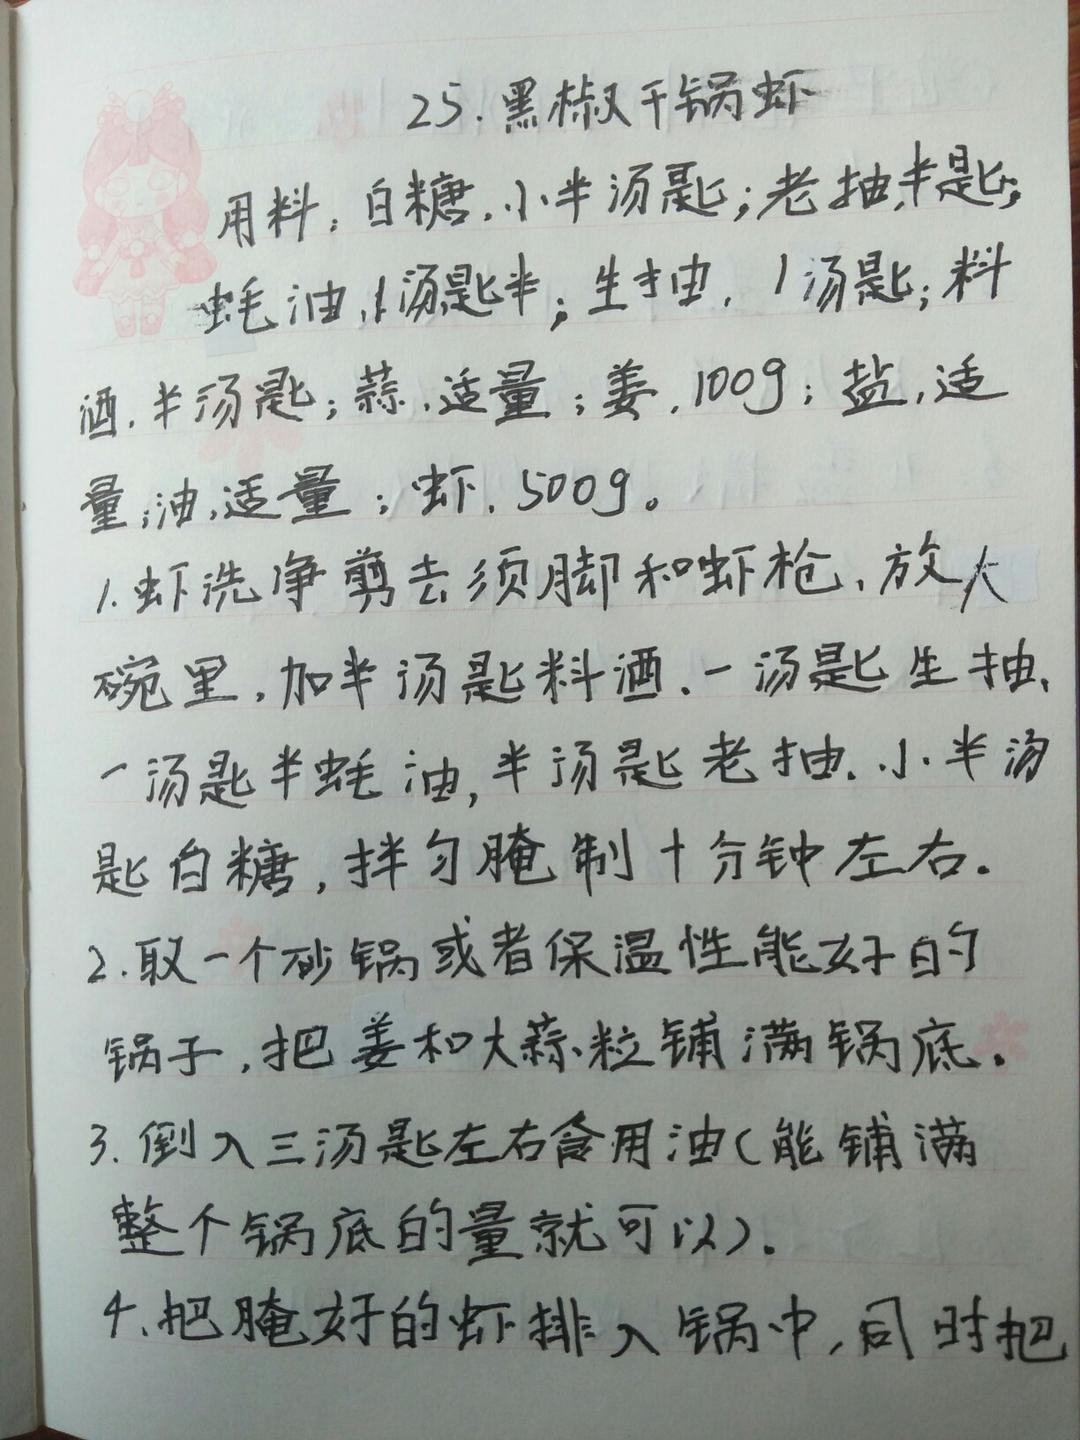 25.黑椒干锅虾
用料:白糖,小半汤匙;老抽,半匙;
蚝油,1汤匙半;生抽,1汤匙;料
酒,半汤匙;蒜,适量;姜,100g;盐,适
量;油,适量;虾,500g。
1.虾洗净剪去须脚和虾枪,放大
碗里,加半汤匙料酒.一汤匙生抽、
一汤匙半蚝油,半汤匙老抽.小半汤
匙白糖,拌匀腌制十分钟左右.
2.取一个砂锅或者保温性能好的
锅子,把姜和大蒜粒铺满锅底.
3.倒入三汤匙左右食用油(能铺满
整个锅底的量就可以).
4.把腌好的虾排入锅中,同时把